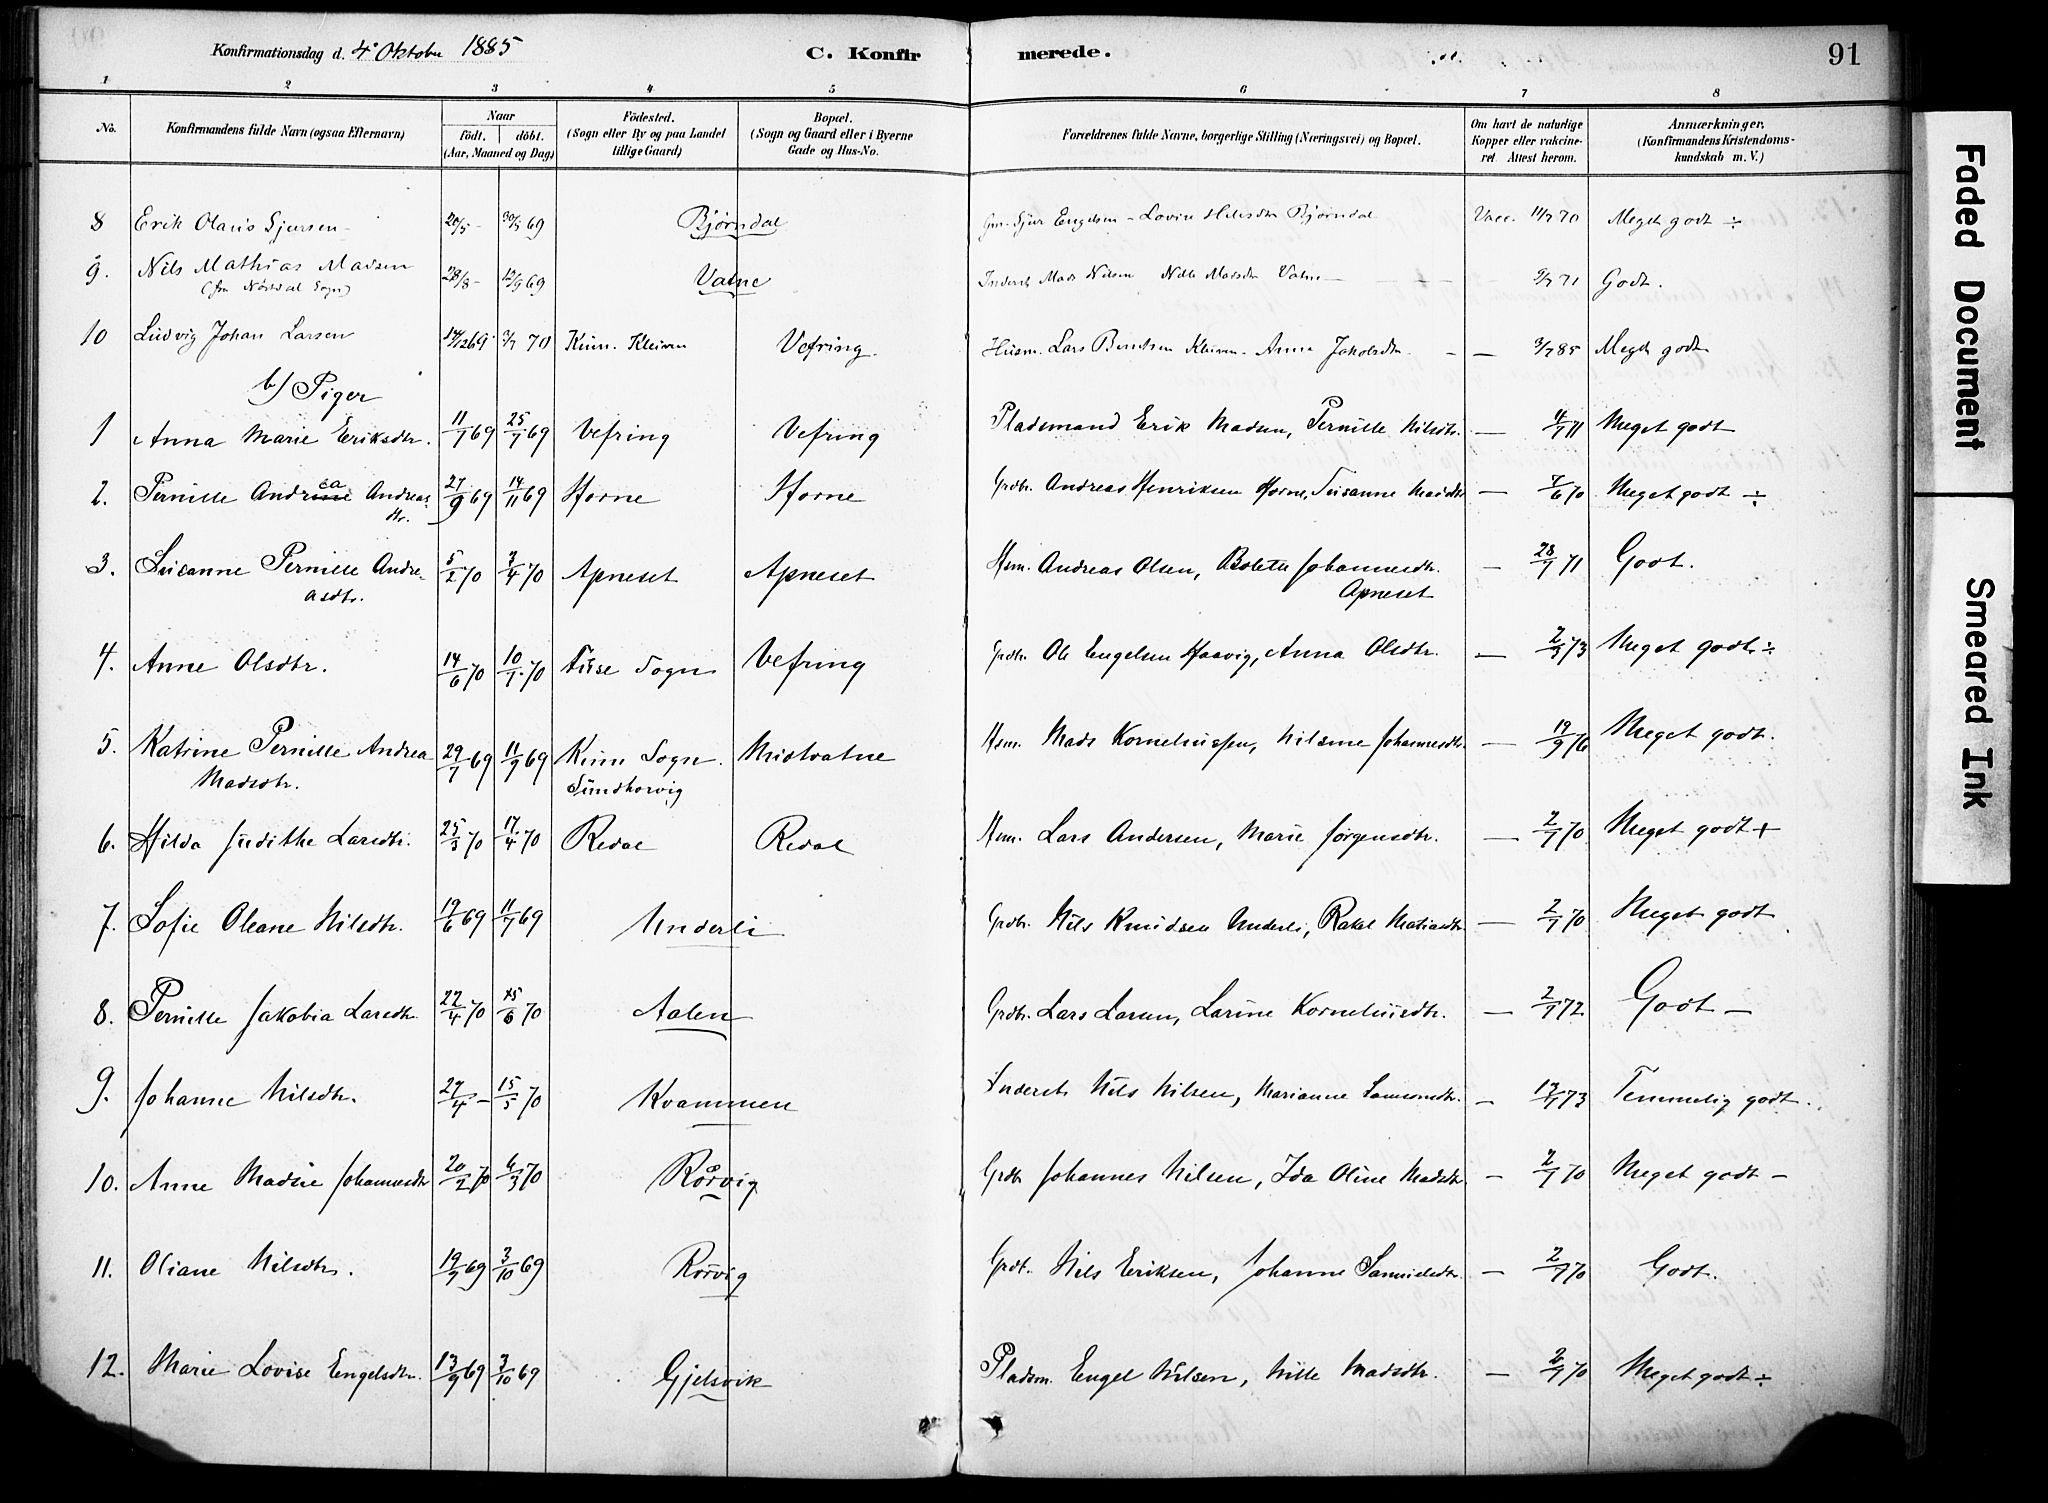 Konfirmationsdag d. 4de Oktober 1885 C. Konfirmerede. 91
1 2 3 4 5 6 7 8
No. Konfirmandens fulde Navn (ogsaa Efternavn) Naar født. døbt. (Aar, Maaned og Dag) Fødested. (Sogn eller By og paa Landet tillige Gaard) Bopæl. (Sogn og Gaard eller i Byerne Gade og Hus-No. Forældrenes fulde Navne, borgerlige Stilling (Næringsvei) og Bopæl. Om havt de naturlige Kopper eller vakcineret. Attest herom. Anmærkninger. (Konfirmandens Kristendomskundskab m. V.)
8 Erik Olaus Sjursen 20/5 - 30/5 69 Bjørndal Gm. Sjur Engelsen - Lovise Nilsdtr Bjørndal Vacc. 11/7 70 Meget godt ÷
9. Nils Mathias Madsen 28/8 - 12/9 69 Vatne Inderst Mads Nilsen Nille Madsdtr Vatne - 9/7 71 Godt.
(fra Nøstdal Sogn)
10 Ludvig Johan Larsen 14/12 69 3/7 70 Kinn. Kleiven Vefring. Husm. Lars Berntsen Kleiven - Anne Jakobsdtr. - 3/7 85 Meget godt
b/ Piger
1 Anna Marie Eriksdtr. 11/7 69 25/7 69 Vefring Vefring Pladsmand Erik Madsen, Pernille Nilsdtr. - 4/7 71 Meget godt
2. Pernille Andrea Andreas- 27/9 69 14/11 69 Horne Horne Grdbr. Andreas Henriksen Horne, Susanne Madsdtr - 7/6 70 Meget godt ÷
dtr.
3. Susanne Pernille Andre- 5/2 70 3/4 70 Apneset Apneset Hsm. Andreas Olsen, Bolette Johannesdtr. - 28/7 71 Godt.
asdtr. Apneset
4. Anne Olsdtr. 14/6 70 10/7 70 Fuse Sogn Vefring Grdbr. Ole Engelsen Haavig, Anna Olsdtr. - 2/5 73 Meget godt ÷
5. Katrine Pernille Andrea 29/7 69 11/9 69 Kinn Sogn. Midtvatne Hsm. Mads Korneliussen, Nilsine Johannesdtr. - 19/9 76 Meget godt.
Madsdtr. Sundhorvig
6. Hilda Judithe Larsdtr. 25/3 70 17/4 70 Redal Redal Hsm. Lars Andersen, Marie Jørgensdtr. - 2/7 70 Meget godt +
7. Sofie Oleane Nilsdtr. 19/6 69 11/7 69 Underli Grdbr. Nils Knudsen Underli, Rakel Matiasdtr. - 2/7 70 Meget godt
8. Pernille Jakobia Larsdtr. 22/4 70 15/6 70 Aalen Grdbr. Lars Larsen, Larine Korneliusdtr. - 2/7 72 Godt -
9. Johanne Nilsdtr. 27/4 - 15/5 70 Kvammen Inderst Nils Nilsen, Marianne Samsonsdtr. - 13/7 73 Temmelig godt.
10. Anne Madsie Johannesdtr 20/2 70 6/3 70 Rørvig Grdbr Johannes Nilsen, Ida Oline Madsdtr. - 2/7 70 Meget godt -
11. Oliane Nilsdtr. 19/9 69 3/10 69 Rørvig Grdbr. Nils Eriksen, Johanne Samuelsdtr. - 2/7 70 Godt.
12. Marie Lovise Engelsdtr. 13/9 69 3/10 69 Gjelsvik Pladsm. Engel Nilsen, Nille Madsdtr. - 2/7 70 Meget godt ÷
Faded Document
Smeared Ink